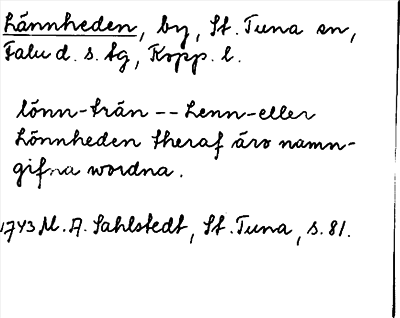 Lännheden, by, St. Tuna sn,
Falu d. s. tg, Kopp. l.
lönn-trän -- Lenn-eller
Lönnheden theraf äro namn-
gifna wordna.
1743 M. A. Sahlstedt, St. Tuna, s. 81.